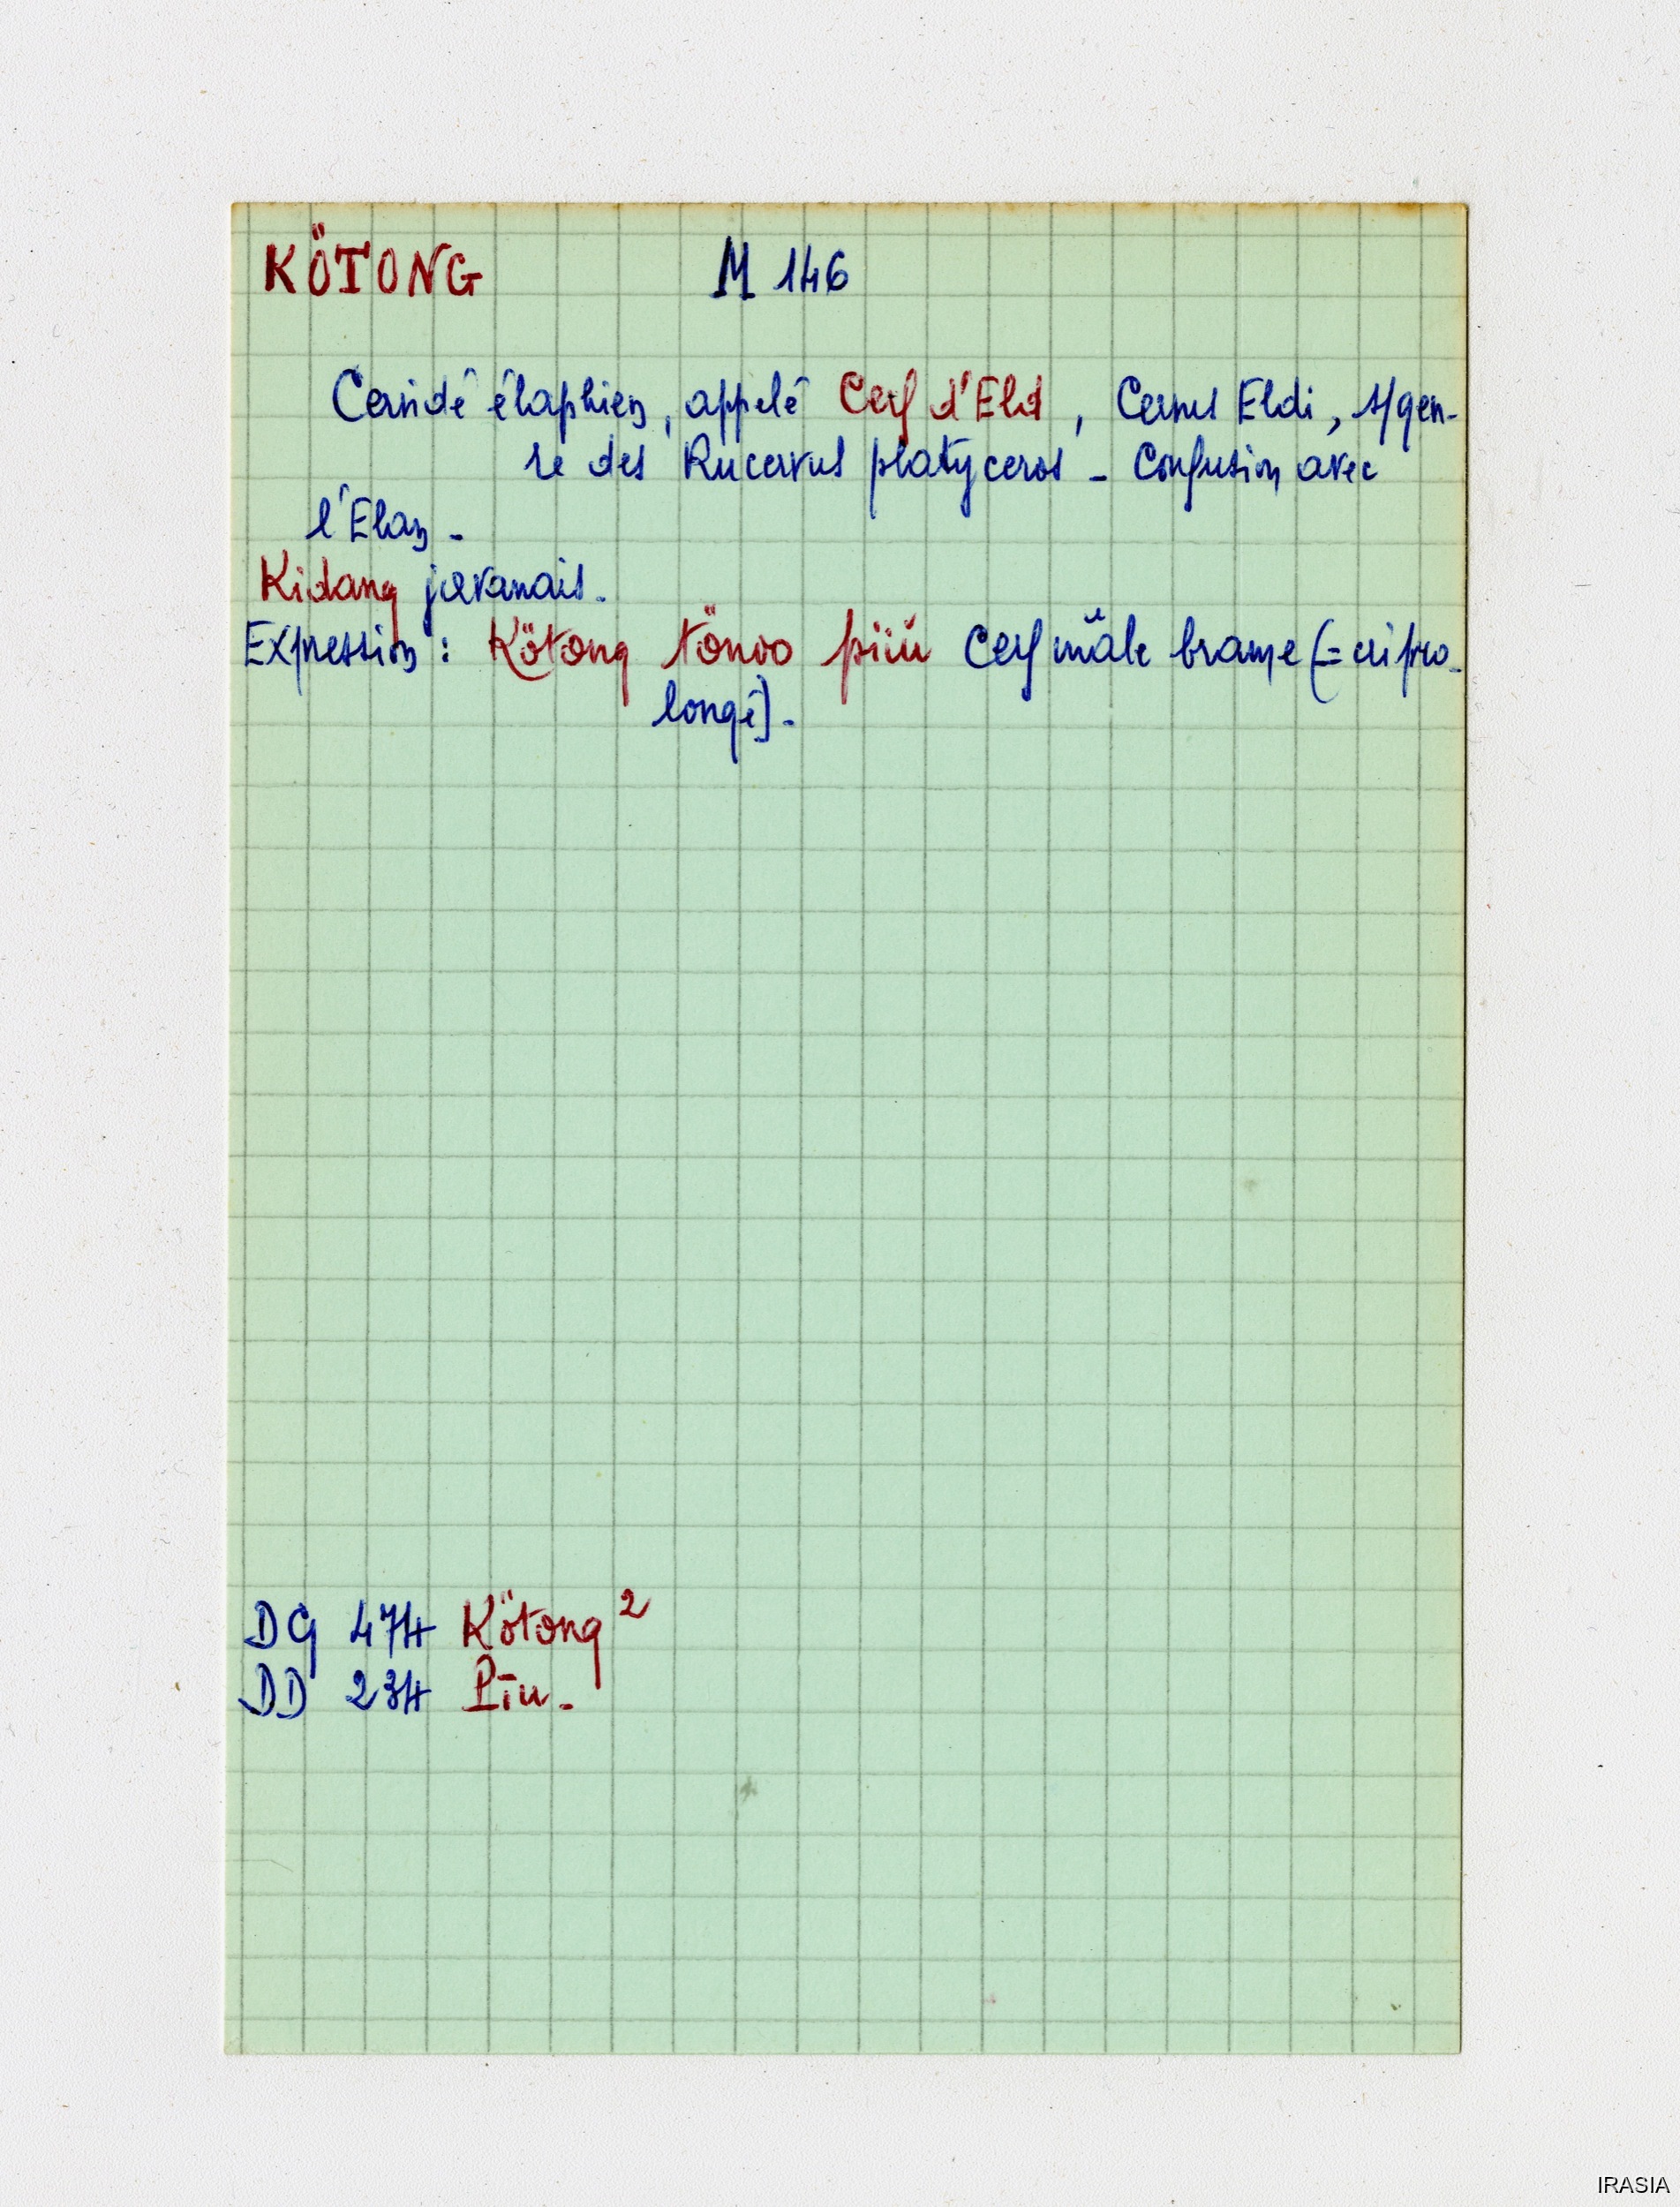 KÖTONG M 146
Cervidé élaphien, appelé Cerf d'Eld, Cervus Eldi, s/gen-
re des Rucervus platyceros - Confusion avec
l'Elan -
Kidang javanais.
Expression : Kötong tönoo püü Cerf mâle brame (= cri pro-
longé).
DG 474 Kötong²
DD 234 Pīu.
IRASIA